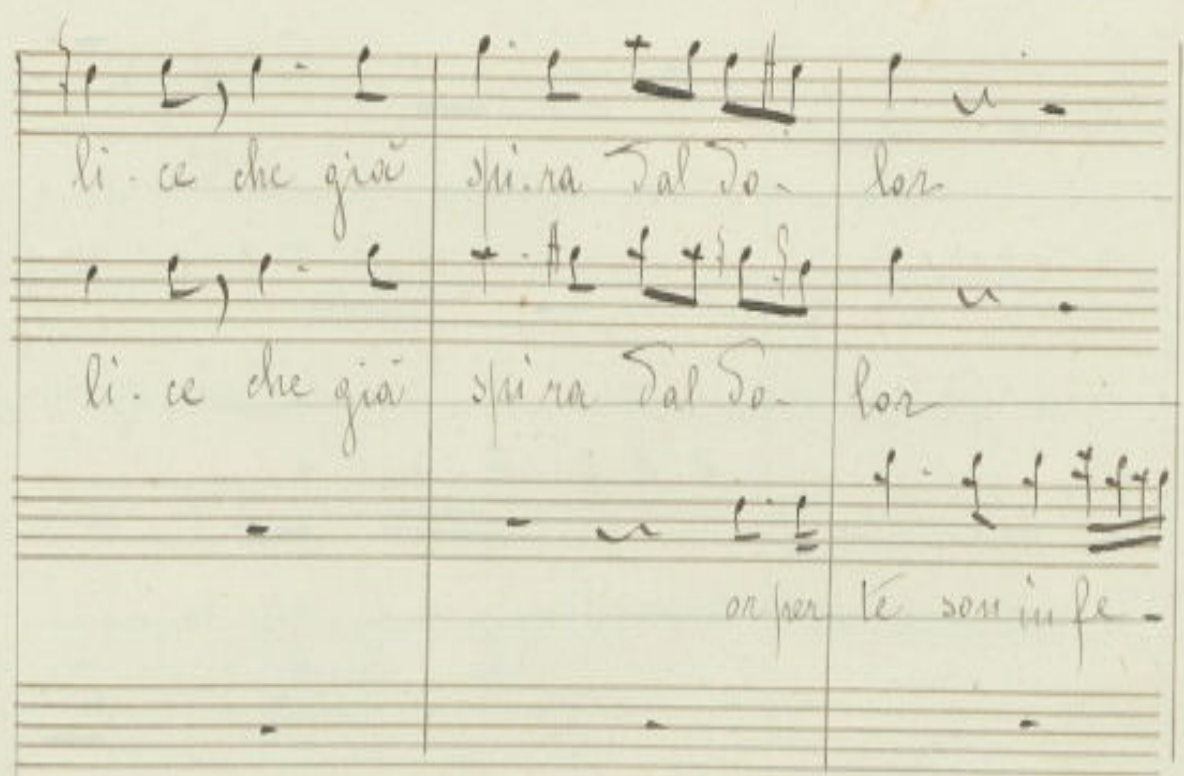 li - ce che già spi - ra dal do - lor
li - ce che già spi ra dal do - lor
or per te son in fe -